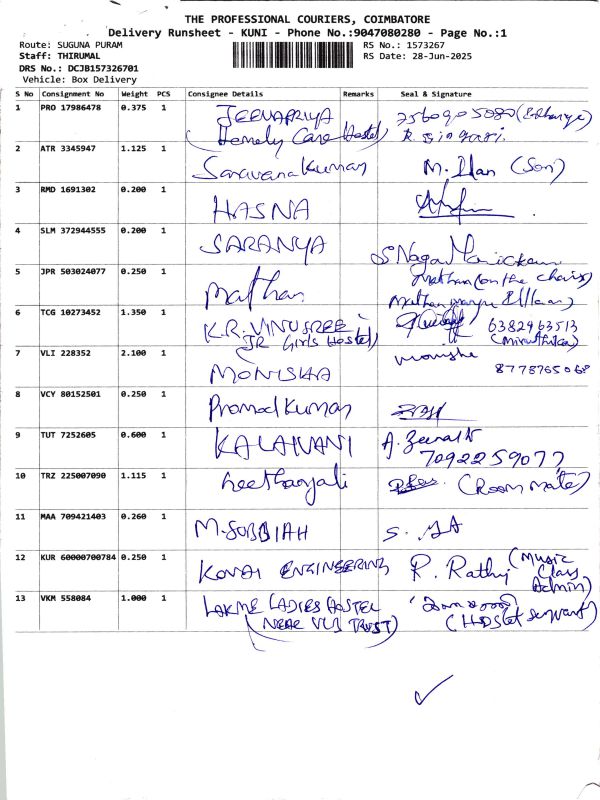 THE PROFESSIONAL COURIERS, COIMBATORE
Delivery Runsheet - KUNI - Phone No.:9047080280 - Page No.:1
Route: SUGUNA PURAM RS No.: 1573267
Staff: THIRUMAL RS Date: 28-Jun-2025
DRS No.: DCJB157326701
Vehicle: Box Delivery
S No Consignment No Weight PCS Consignee Details Remarks Seal & Signature
1 PRO 17986478 0.375 1 JEEVAPRIYA
Homely Care Hostel
2 ATR 3345947 1.125 1 Saravanakumar M. Ilan (Son)
3 RMD 1691302 0.200 1 HASNA
4 SLM 372944555 0.200 1 SARANYA S Naga Manickam
5 JPR 503024077 0.250 1 Mathan Mathan (on the chair)
6 TCG 10273452 1.350 1 K.R. VINUSREE 6382963513
JR Girls Hostel)
7 VLI 228352 2.100 1 MONISHA 8778765068
8 VCY 80152501 0.250 1 Pramod Kumar
9 TUT 7252605 0.600 1 KALAIVANI
7092259077
10 TRZ 225007090 1.115 1 Geethanjali (Room mate)
11 MAA 709421403 0.260 1 M.SUBBIAH
12 KUR 60000700784 0.250 1 KOVAI ENGINEERING R. Rathi (Music
Class
Admin)
13 VKM 558084 1.000 1 LAKME LADIES HOSTEL
(NEAR VLB TRUST) (Hostel servant)